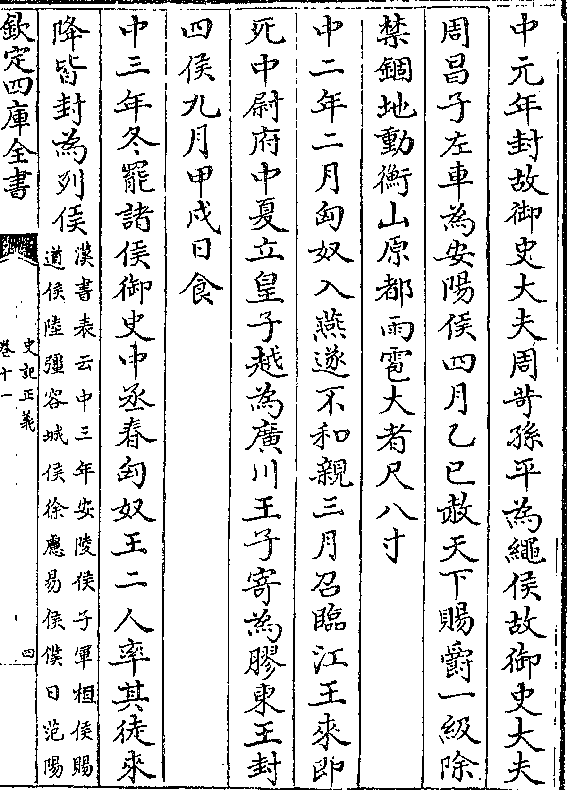 中元年封故御史大夫周苛孫平為繩侯故御史大夫
周昌子左車為安陽侯四月乙巳赦天下賜爵一級除
禁錮地動衡山原都雨雹大者尺八寸
中二年二月匈奴入燕遂不和親三月召臨江王來即
死中尉府中夏立皇子越為廣川王子寄為膠東王封
四侯九月甲戌日食
中三年冬罷諸侯御史中丞春匈奴王二人率其徒來
降皆封為列侯
漢書表云中三年安陵侯子軍桓侯賜
遒侯陸彊容城侯徐盧易侯僕䵣范陽
欽定四庫全書
史記正義
卷十一
四